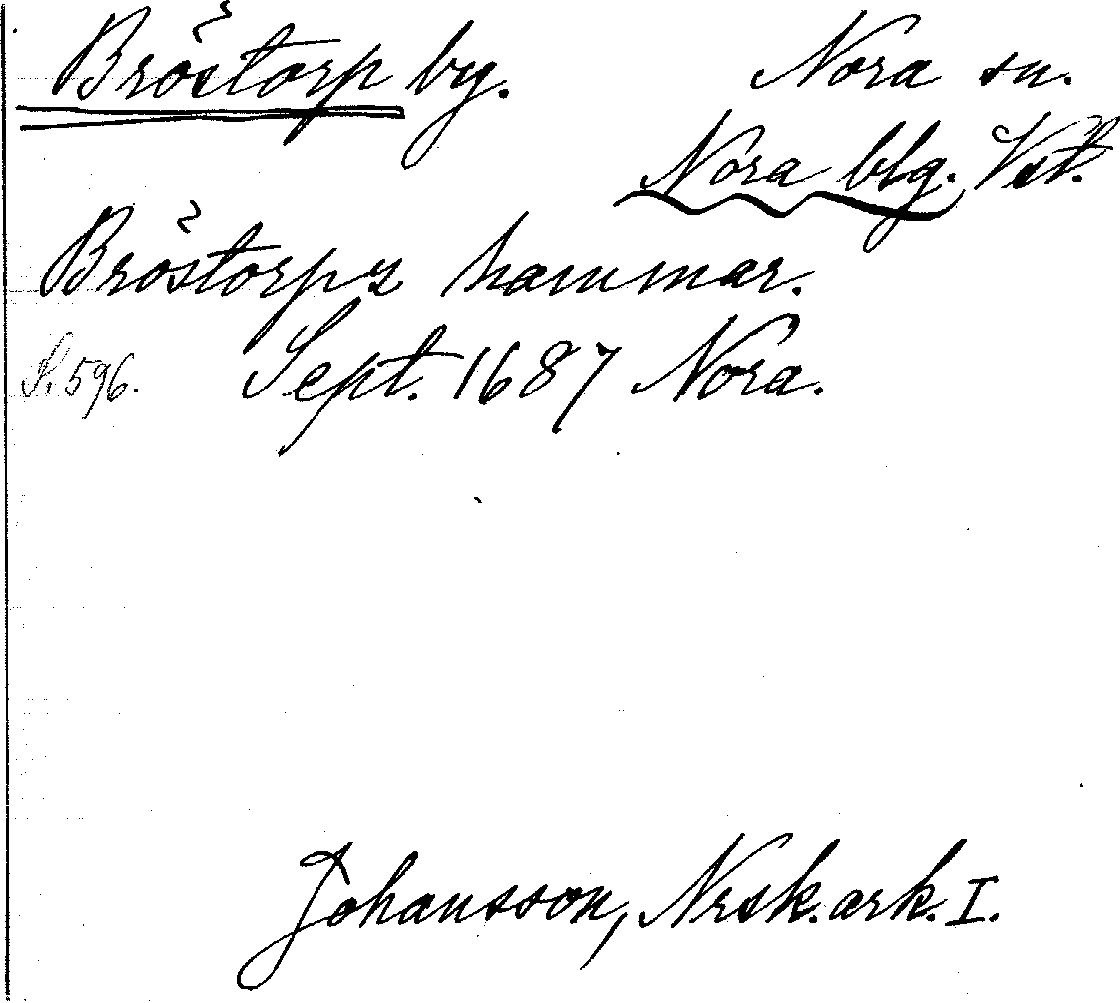 Bröstorp by. Nora sn.
Nora blg. Vstl.
Bröstorps hammar.
S. 596. Sept. 1687 Nora.
Johansson, Nrsk. ark. I.